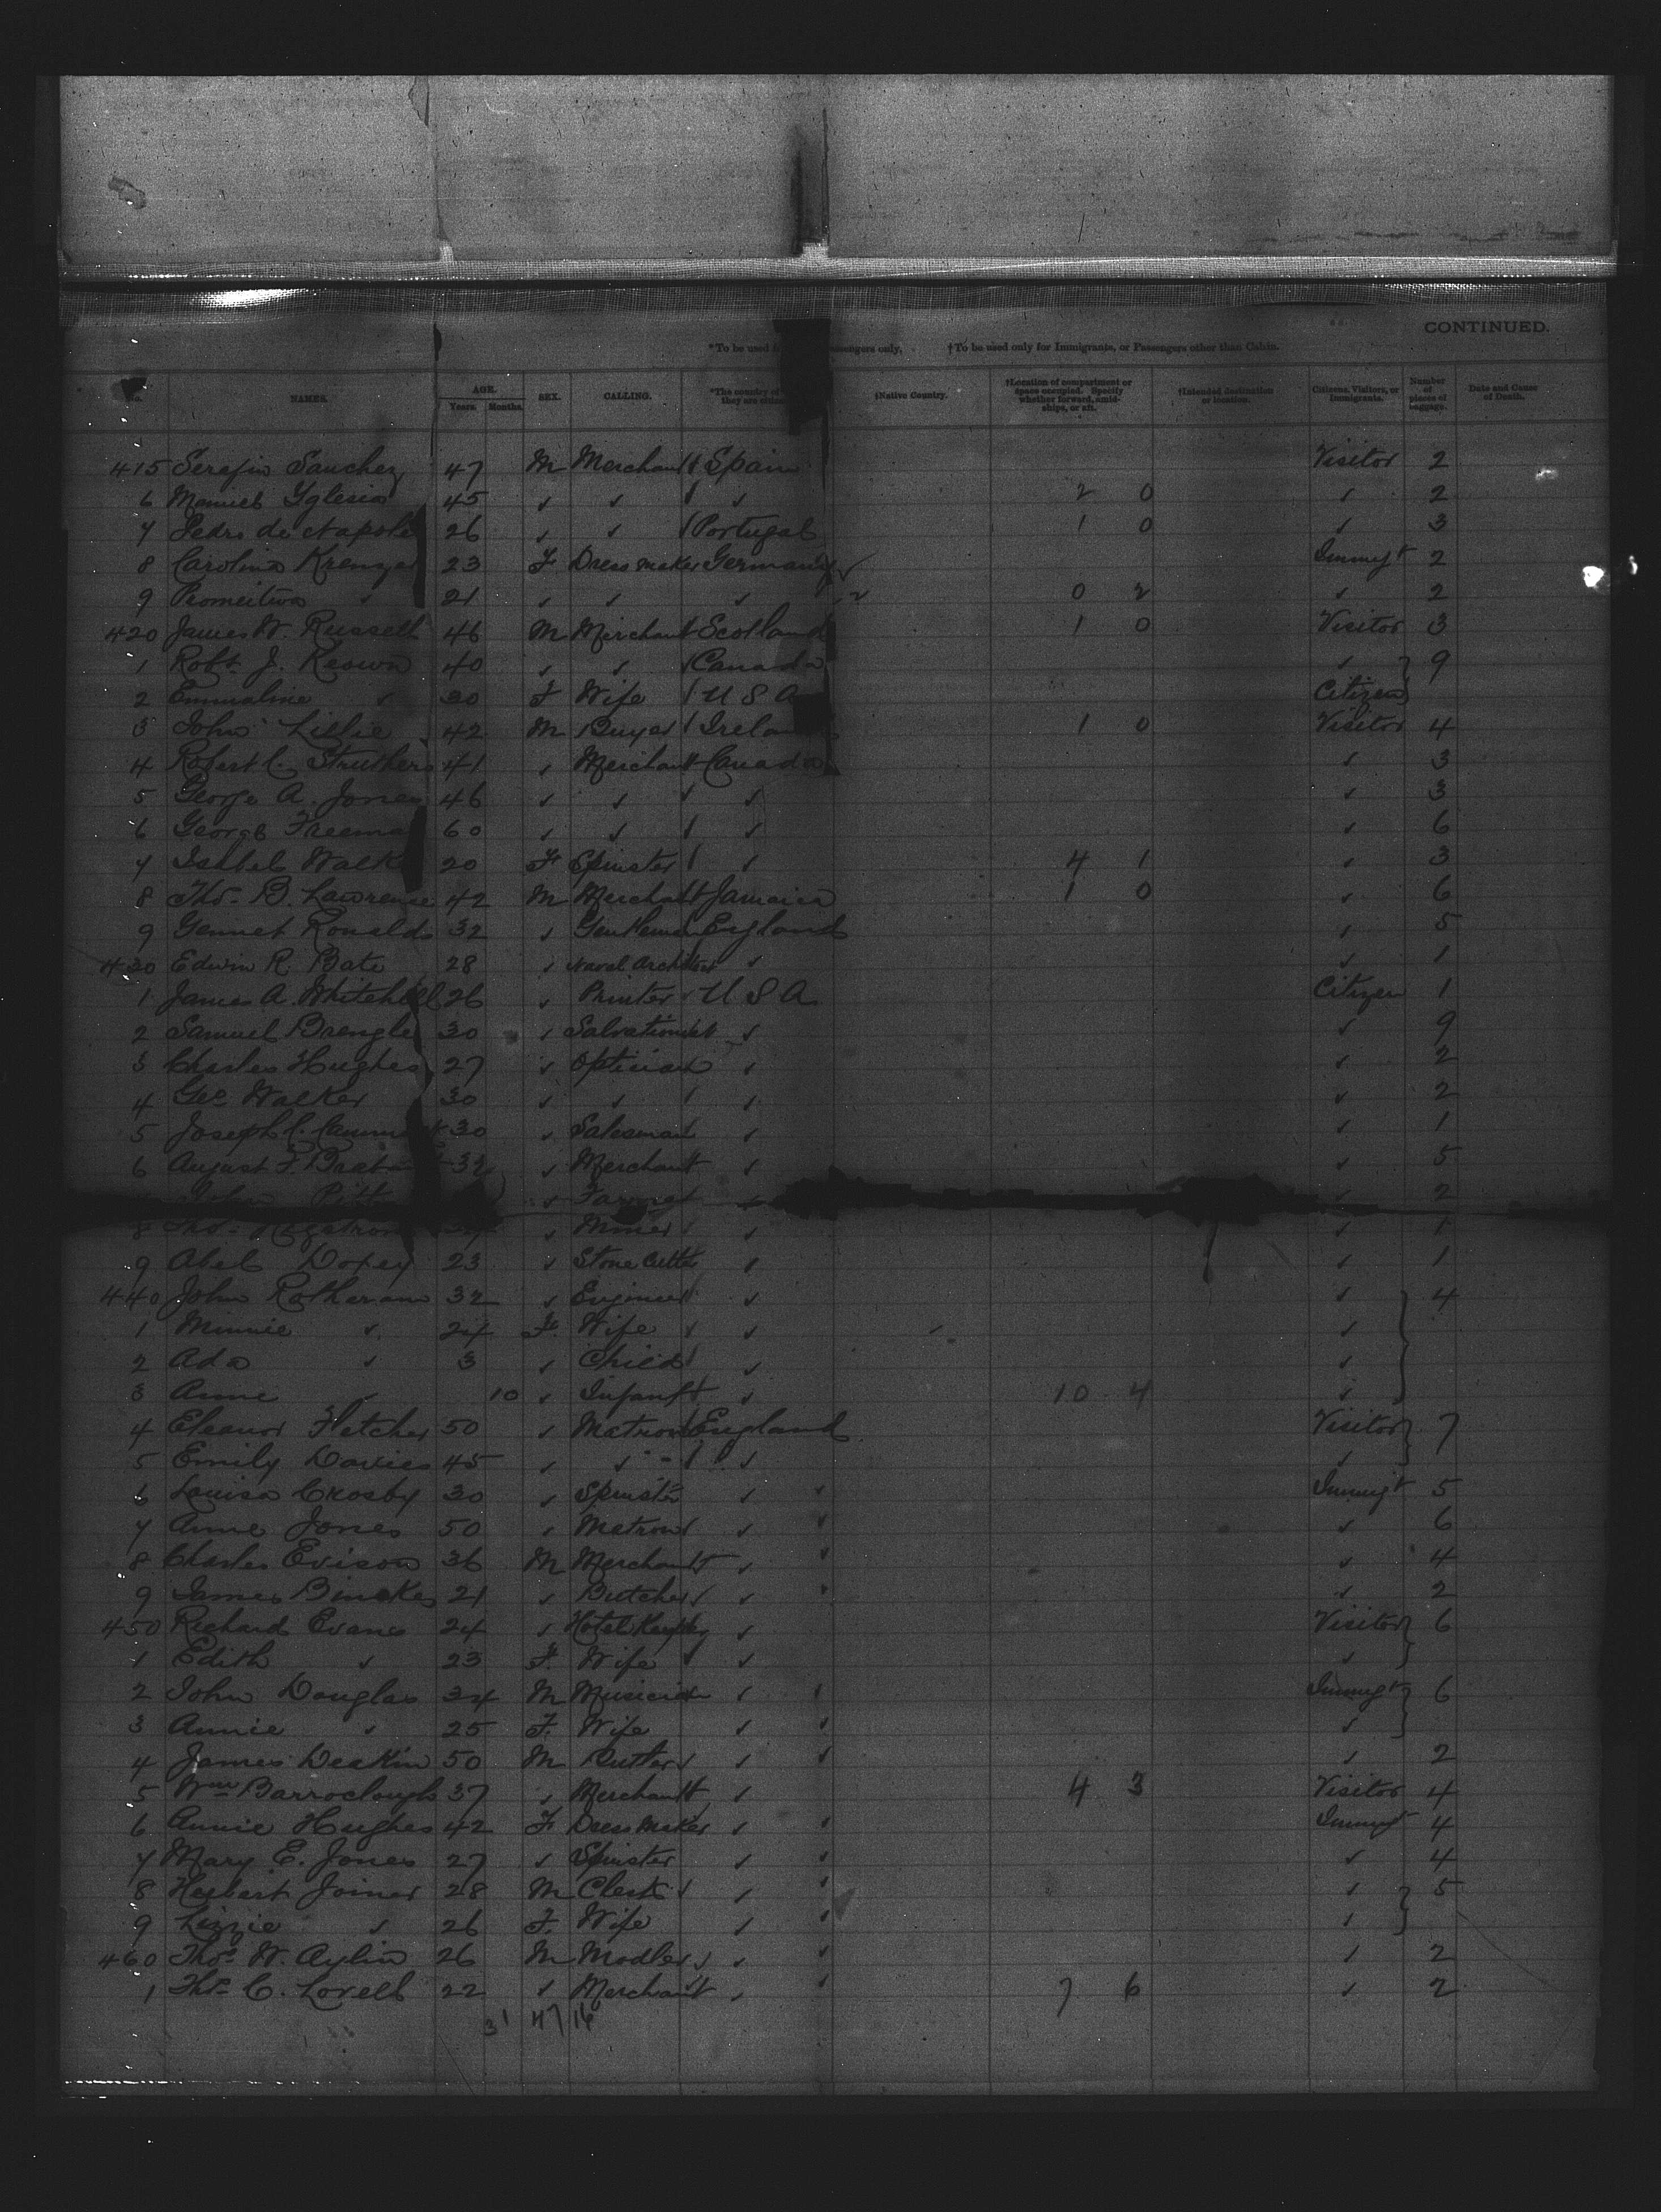 CONTINUED.
*To be used only, †To be used only for Immigrants, or Passengers other than Cabin.
No. NAMES. AGE. Years. Months. SEX. CALLING. *The country of they are †Native Country. †Location of compartment or space occupied. Specify whether forward, amidships, or aft. †Intended destination or location. Citizens, Visitors, or Immigrants. Number of pieces of baggage. Date and Cause of Death.
415 Serafin Sanchez 47 M Merchant Spain Visitor 2
6 Manuel Yglesia 45 " " " 2 0 " 2
7 Pedro de 26 " " Portugal 1 0 " 3
8 Carolina 23 F Dressmaker Germany Immigt 2
9 " 21 " " " 0 2 " 2
420 James W. Russell 46 M Merchant Scotland 1 0 Visitor 3
1 Robt. J. Keown 40 " " Canada " } 9
2 Emmaline " 30 F Wife U S A Citizen
3 John Lillie 42 M Buyer 1 0 Visitor 4
4 Robert C. Struthers 41 " Merchant Canada " 3
5 George A. Jones 46 " " " " 3
6 George 60 " " " " 6
7 Isabel 20 F Spinster " 4 1 " 3
8 Thos. B. Lawrence 42 M Merchant Jamaica 1 0 " 6
9 Ronalds 32 " Gentleman England " 5
430 Edwin R. Bate 28 " Naval Architect " " 1
1 James A. 26 " Printer U S A Citizen 1
2 Samuel 30 " Salvationist " " 9
3 Charles Hughes 27 " Optician " " 2
4 Geo. Walker 30 " " " " 2
5 Joseph C. 30 " Salesman " " 1
6 August F. 32 " Merchant " " 5
John " Farmer " " 2
8 Thos. " Miner " " 1
9 Abel Doxey 23 " Stone Cutter " " 1
440 John Rotheram 32 " Engineer " " } 4
1 Minnie " 24 F. Wife " "
2 Ada " 3 " Child " "
3 Anne " 10 " Infant " 10 4 "
4 Eleanor Fletcher 50 " Matron England Visitor } 7
5 Emily Davies 45 " " " "
6 Louisa Crosby 30 " Spinster " " Immigt 5
7 Anne Jones 50 " Matron " " " 6
8 Charles Evison 36 M Merchant " " " 4
9 James 21 " Butcher " " " 2
450 Richard Evans 24 " Hotel Keeper " Visitor } 6
1 Edith " 23 F. Wife " "
2 John Douglas 34 M Musician " " Immigt } 6
3 Annie " 25 F. Wife " " "
4 James Deakin 50 M Butler " " " 2
5 Wm Barroclough 37 " Merchant " 4 3 Visitor 4
6 Annie Hughes 42 F Dressmaker " " Immigt 4
7 Mary E. Jones 27 " Spinster " " " 4
8 Herbert Joiner 28 M Clerk " " " } 5
9 Lizzie " 26 F. Wife " " "
460 Thos. W. Aylin 26 M Modler " " " 2
1 Thos. C. Lovell 22 " Merchant " " 7 6 " 2
31 47 16